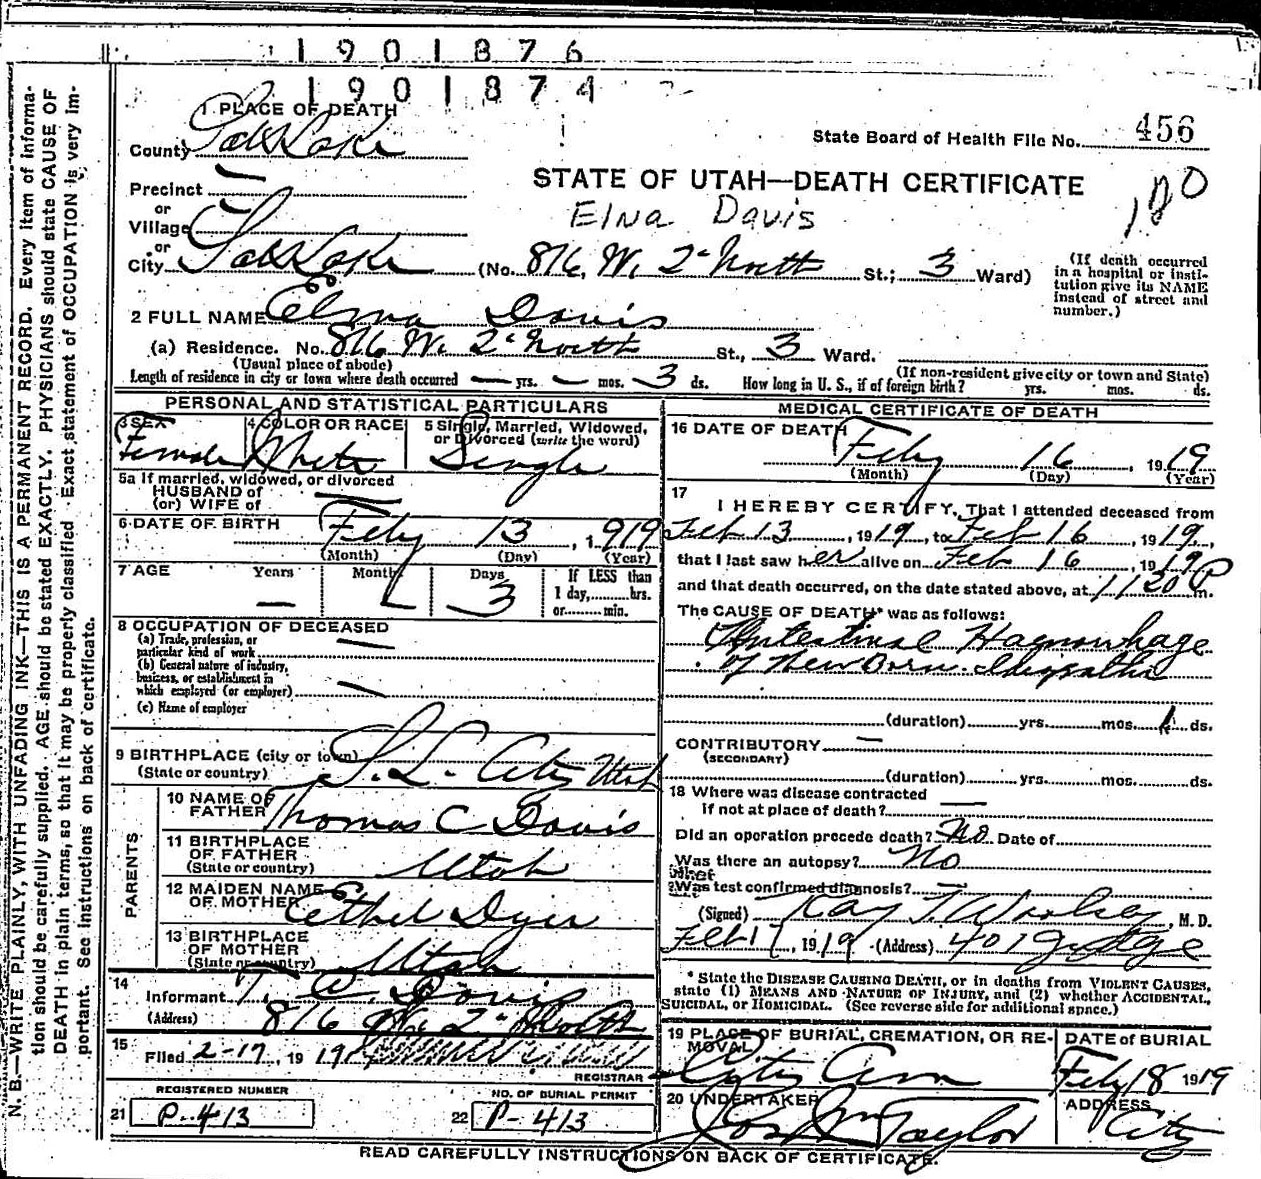 1901876
1901874
N. B.—WRITE PLAINLY, WITH UNFADING INK—THIS IS A PERMANENT RECORD. Every item of informa-
tion should be carefully supplied. AGE should be stated EXACTLY. PHYSICIANS should state CAUSE OF
DEATH in plain terms, so that it may be properly classified. Exact statement of OCCUPATION is very im-
portant. See instructions on back of certificate.
1 PLACE OF DEATH
State Board of Health File No. 456
County Salt Lake
STATE OF UTAH—DEATH CERTIFICATE
180
Precinct —
or
Village —
Elna Davis
or
City Salt Lake (No. 816 W. 2" North St.; 3 Ward)
(If death occurred
in a hospital or insti-
tution give its NAME
instead of street and
number.)
2 FULL NAME Elna Davis
(a) Residence. No. 816 W. 2" North St., 3 Ward.
(Usual place of abode)
(If non-resident give city or town and State)
Length of residence in city or town where death occurred — yrs. — mos. 3 ds. How long in U. S., if of foreign birth? yrs. mos. ds.
PERSONAL AND STATISTICAL PARTICULARS
3 SEX
Female
4 COLOR OR RACE
White
5 Single, Married, Widowed,
or Divorced (write the word)
Single
5a If married, widowed, or divorced
HUSBAND of
(or) WIFE of —
6 DATE OF BIRTH Feby 13, 1919
(Month) (Day) (Year)
7 AGE Years Months Days If LESS than
1 day,......hrs.
or......min.
— — 3
8 OCCUPATION OF DECEASED
(a) Trade, profession, or
particular kind of work —
(b) General nature of industry,
business, or establishment in
which employed (or employer) —
(c) Name of employer
9 BIRTHPLACE (city or town)
(State or country) S. L. City Utah
PARENTS
10 NAME OF
FATHER Thomas C Davis
11 BIRTHPLACE
OF FATHER
(State or country) Utah
12 MAIDEN NAME
OF MOTHER Ethel Dyer
13 BIRTHPLACE
OF MOTHER
(State or country) Utah
14
Informant T. C. Davis
(Address) 816 W. 2" North
15
Filed 2-17, 1919
REGISTRAR
REGISTERED NUMBER
21 P-413
NO. OF BURIAL PERMIT
22 P-413
MEDICAL CERTIFICATE OF DEATH
16 DATE OF DEATH
Feby 16, 1919
(Month) (Day) (Year)
17
I HEREBY CERTIFY, That I attended deceased from
Feb 13, 1919, to Feb 16, 1919,
that I last saw her alive on Feb 16, 1919
and that death occurred, on the date stated above, at 11 20 P m.
The CAUSE OF DEATH* was as follows:
Intestinal Haemorrhage
of New born.
(duration) yrs. mos. 1 ds.
CONTRIBUTORY —
(SECONDARY)
(duration) yrs. mos. ds.
18 Where was disease contracted
if not at place of death? —
Did an operation precede death? No Date of
Was there an autopsy? No
What
Was test confirmed diagnosis? —
(Signed) Ray T. Woolsey, M. D.
Feb 17, 1919 (Address) 401 Judge
* State the DISEASE CAUSING DEATH, or in deaths from VIOLENT CAUSES,
state (1) MEANS AND NATURE OF INJURY, and (2) whether ACCIDENTAL,
SUICIDAL, OR HOMICIDAL. (See reverse side for additional space.)
19 PLACE OF BURIAL, CREMATION, OR RE-
MOVAL
City Cem
DATE of BURIAL
Feby 18 1919
20 UNDERTAKER
Jos Wm Taylor
ADDRESS
City
READ CAREFULLY INSTRUCTIONS ON BACK OF CERTIFICATE.